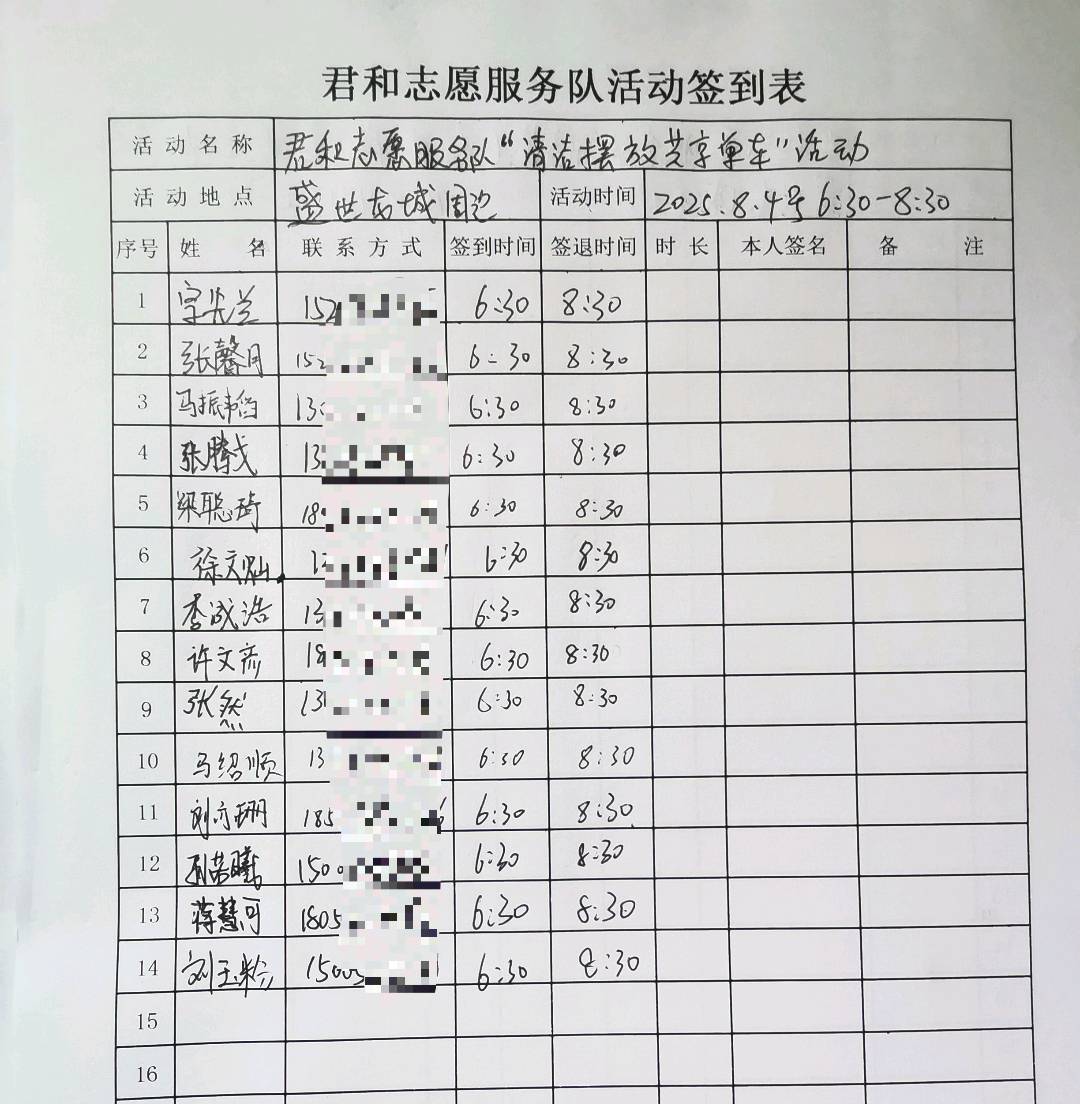 君和志愿服务队活动签到表
活动名称 君和志愿服务队“清洁摆放共享单车”活动
活动地点 盛世古城周边 活动时间 2025.8.4号 6:30-8:30
序号 姓名 联系方式 签到时间 签退时间 时长 本人签名 备注
1 152 6:30 8:30
2 张馨月 152 6:30 8:30
3 马振韬 130 6:30 8:30
4 张腾戈 13 6:30 8:30
5 梁聪琦 18 6:30 8:30
6 徐文灿 6:30 8:30
7 李成浩 13 6:30 8:30
8 许文彦 18 6:30 8:30
9 张然 13 6:30 8:30
10 马绍顺 13 6:30 8:30
11 刘亦珊 185 6:30 8:30
12 孙若曦 150 6:30 8:30
13 蒋慧可 1805 6:30 8:30
14 刘玉粉 1500 6:30 8:30
15
16